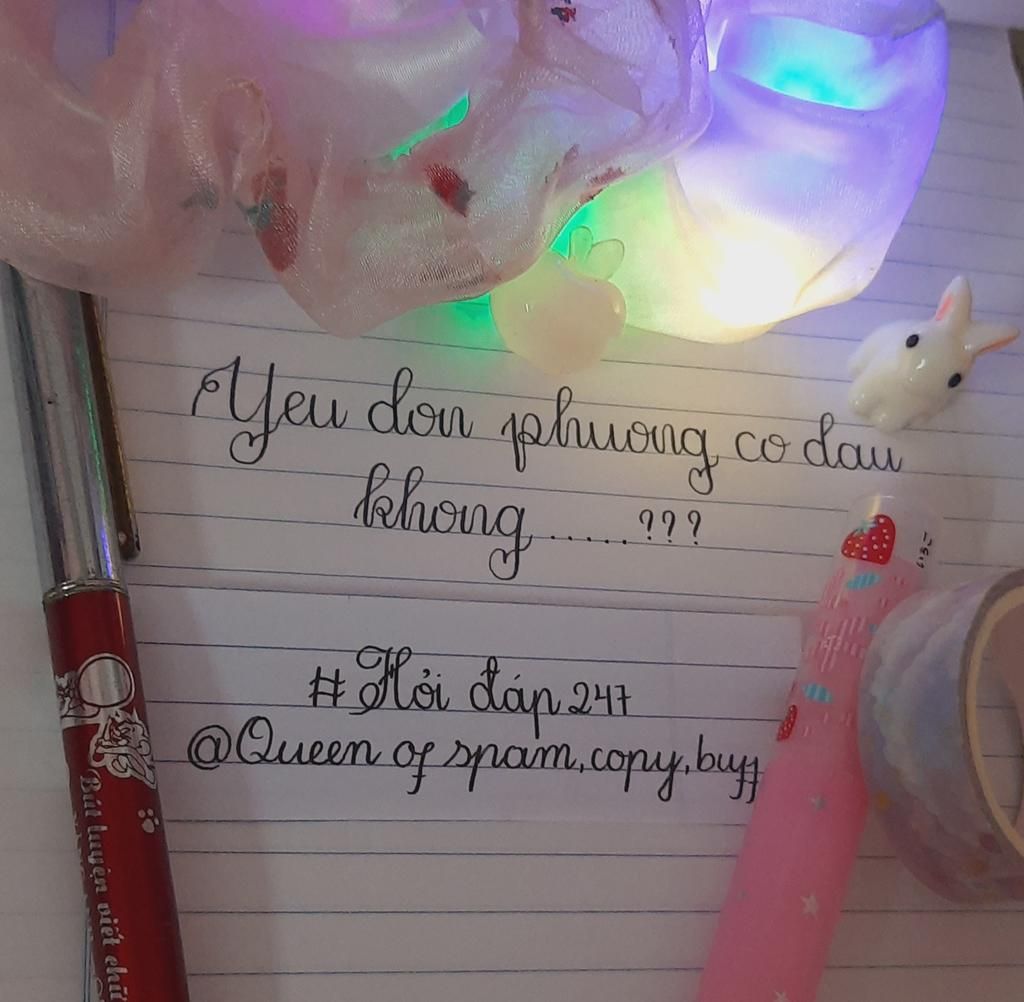 Yeu don phuong co dau
khong.....???
#Hỏi đáp 247
@Queen of spam,copy,buff
Bút luyện viết chữ